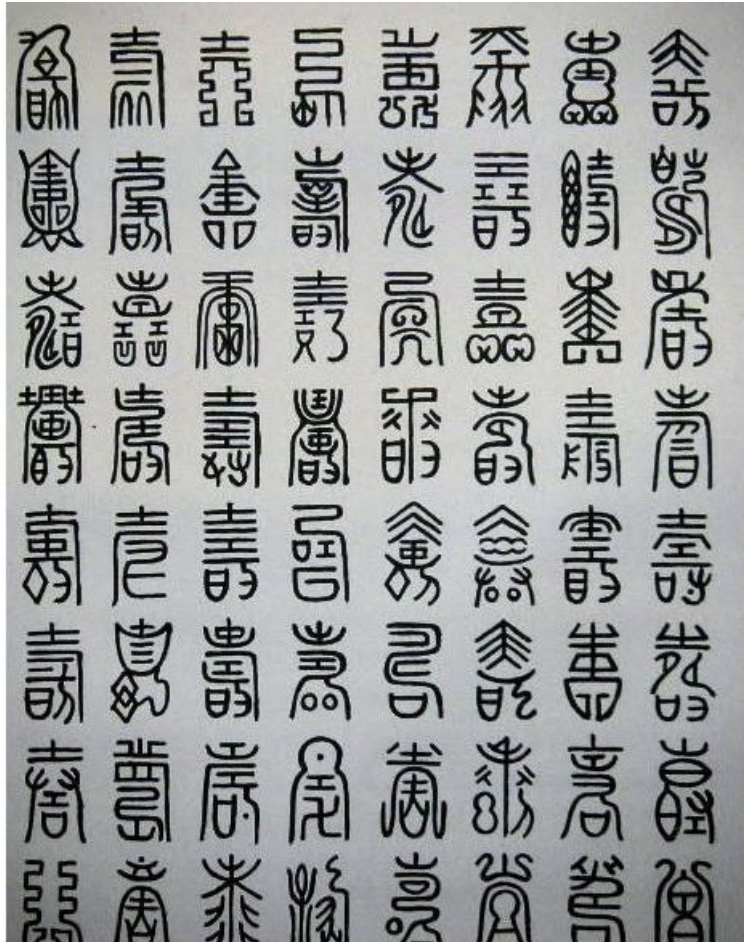 壽壽壽壽壽壽壽壽
壽壽壽壽壽壽壽壽
壽壽壽壽壽壽壽壽
壽壽壽壽壽壽壽壽
壽壽壽壽壽壽壽壽
壽壽壽壽壽壽壽壽
壽壽壽壽壽壽壽壽
壽壽壽壽壽壽壽壽